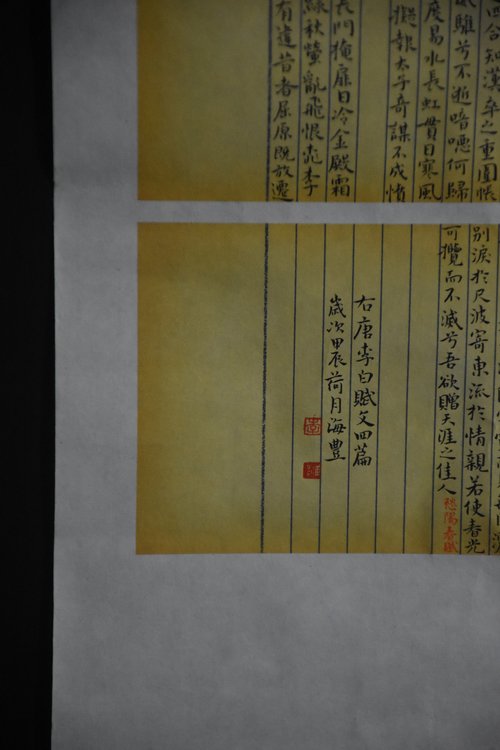 四合知漢卒之重圍帳
騅兮不逝喑噁何歸
度易水長虹貫日寒風
擬報太子奇謀不成憤
長門掩扉日冷金殿霜
綠秋螢亂飛恨桃李
有違昔者屈原既放遷
別淚於尺波寄東流於情親若使春光
可攬而不滅兮吾欲贈天涯之佳人 愁陽春賦
右唐李白賦文四篇
歲次甲辰荷月海豐